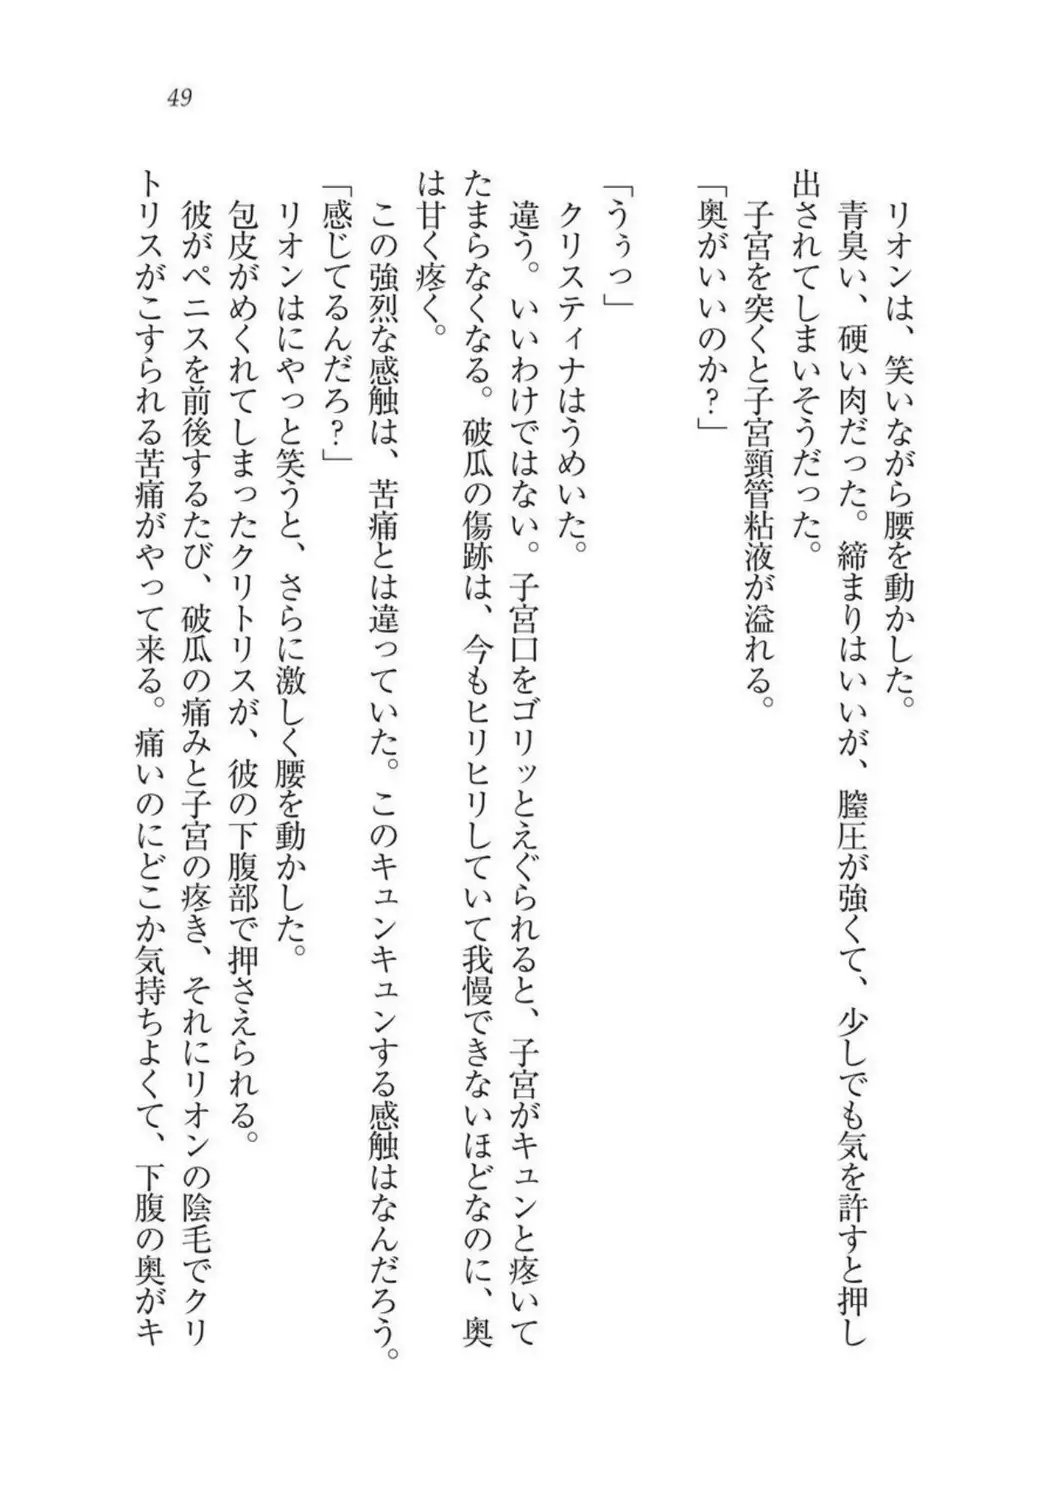 49
リオンは、笑いながら腰を動かした。
青臭い、硬い肉だった。締まりはいいが、膣圧が強くて、少しでも気を許すと押し
出されてしまいそうだった。
子宮を突くと子宮頸管粘液が溢れる。
「奥がいいのか？」
「うぅっ」
クリスティナはうめいた。
違う。いいわけではない。子宮口をゴリッとえぐられると、子宮がキュンと疼いて
たまらなくなる。破瓜の傷跡は、今もヒリヒリしていて我慢できないほどなのに、奥
は甘く疼く。
この強烈な感触は、苦痛とは違っていた。このキュンキュンする感触はなんだろう。
「感じてるんだろ？」
リオンはにやっと笑うと、さらに激しく腰を動かした。
包皮がめくれてしまったクリトリスが、彼の下腹部で押さえられる。
彼がペニスを前後するたび、破瓜の痛みと子宮の疼き、それにリオンの陰毛でクリ
トリスがこすられる苦痛がやって来る。痛いのにどこか気持ちよくて、下腹の奥がキ